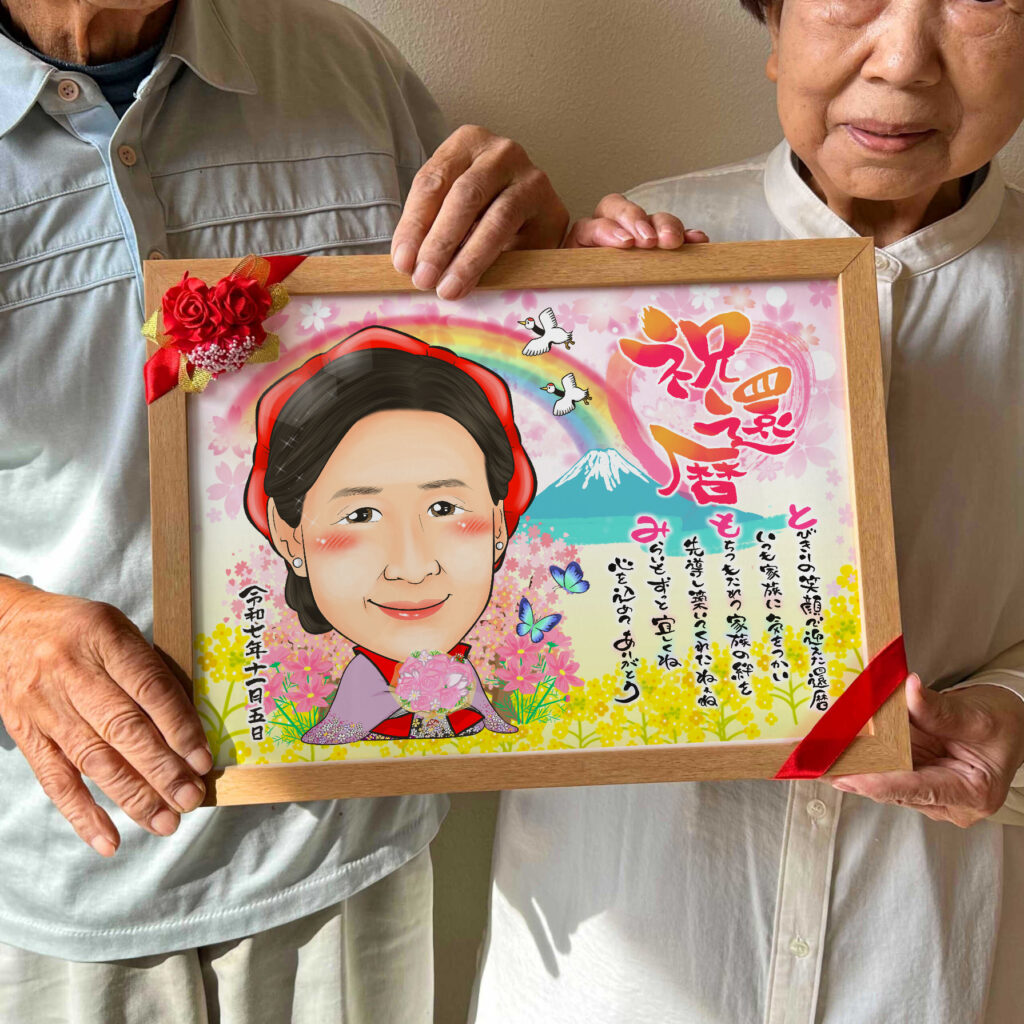 祝還暦
とびきりの笑顔で迎えた還暦
いつも家族に気をつかい
もちつもたれつ家族の絆を
先導し築いてくれたねぇね
みらいもずっと宜しくね
心を込めてありがとう
令和七年十一月五日